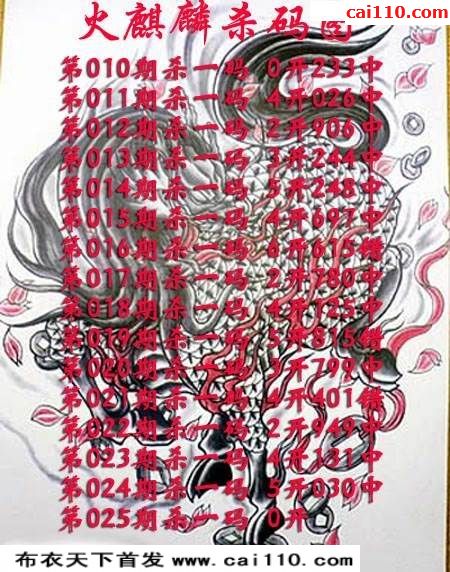 cai110.com
火麒麟杀码
第010期杀一码 0开233中
第011期杀一码 4开026中
第012期杀一码 2开906中
第013期杀一码 3开244中
第014期杀一码 5开248中
第015期杀一码 4开697中
第016期杀一码 6开615错
第017期杀一码 2开780中
第018期杀一码 4开725中
第019期杀一码 5开815错
第020期杀一码 3开799中
第021期杀一码 4开401错
第022期杀一码 2开949中
第023期杀一码 4开131中
第024期杀一码 5开030中
第025期杀一码 0开
布衣天下首发 www.cai110.com